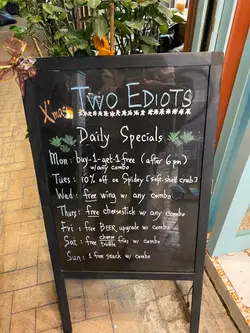 X'mas
TWO EDIOTS
Daily Specials
Mon: buy-1-get-1 free (after 6pm)
w/any combo
Tues: 10% off on Spidey (soft shell crab)
Wed: free wing w/ any combo
Thurs: free cheesestick w/ any combo
Fri: free BEER upgrade w/ combo
Sat: free cheese fries w/ any combo
truffle
Sun: 1 free snack w/ combo